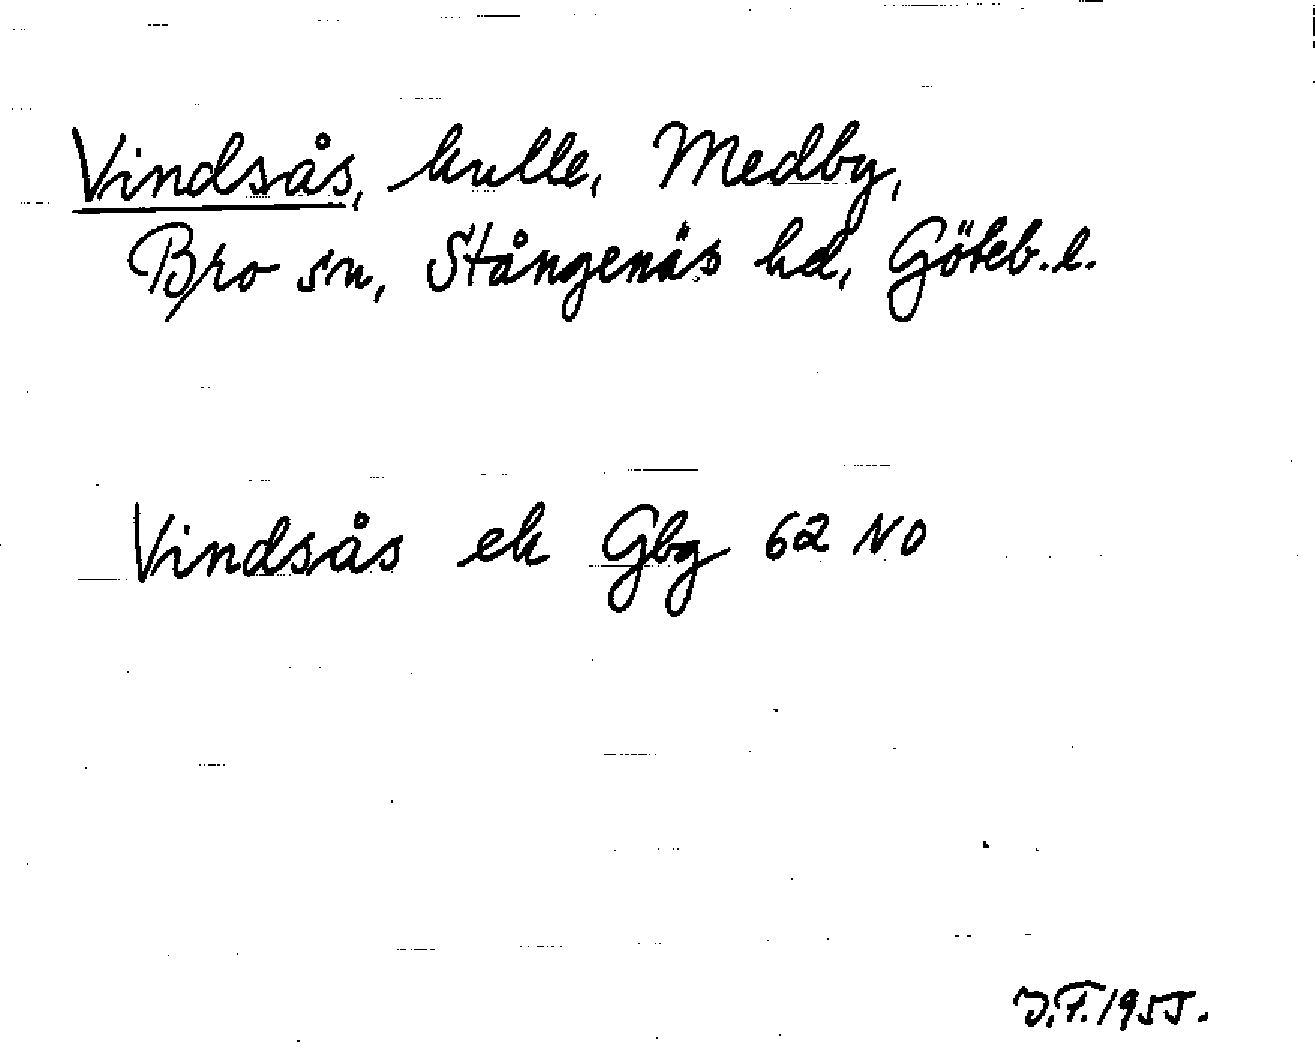 Vindsås, kulle, Medby,
Bro sn, Stångenäs hd, Göteb. l.
Vindsås ek Gbg 62 NO
J.F. 1955.